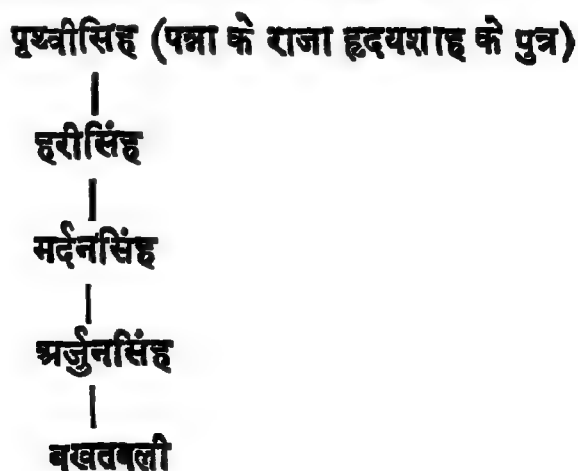 पृथ्वीसिंह (पन्ना के राजा हृदयशाह के पुत्र)
हरीसिंह
मर्दनसिंह
अर्जुनसिंह
बखतबली